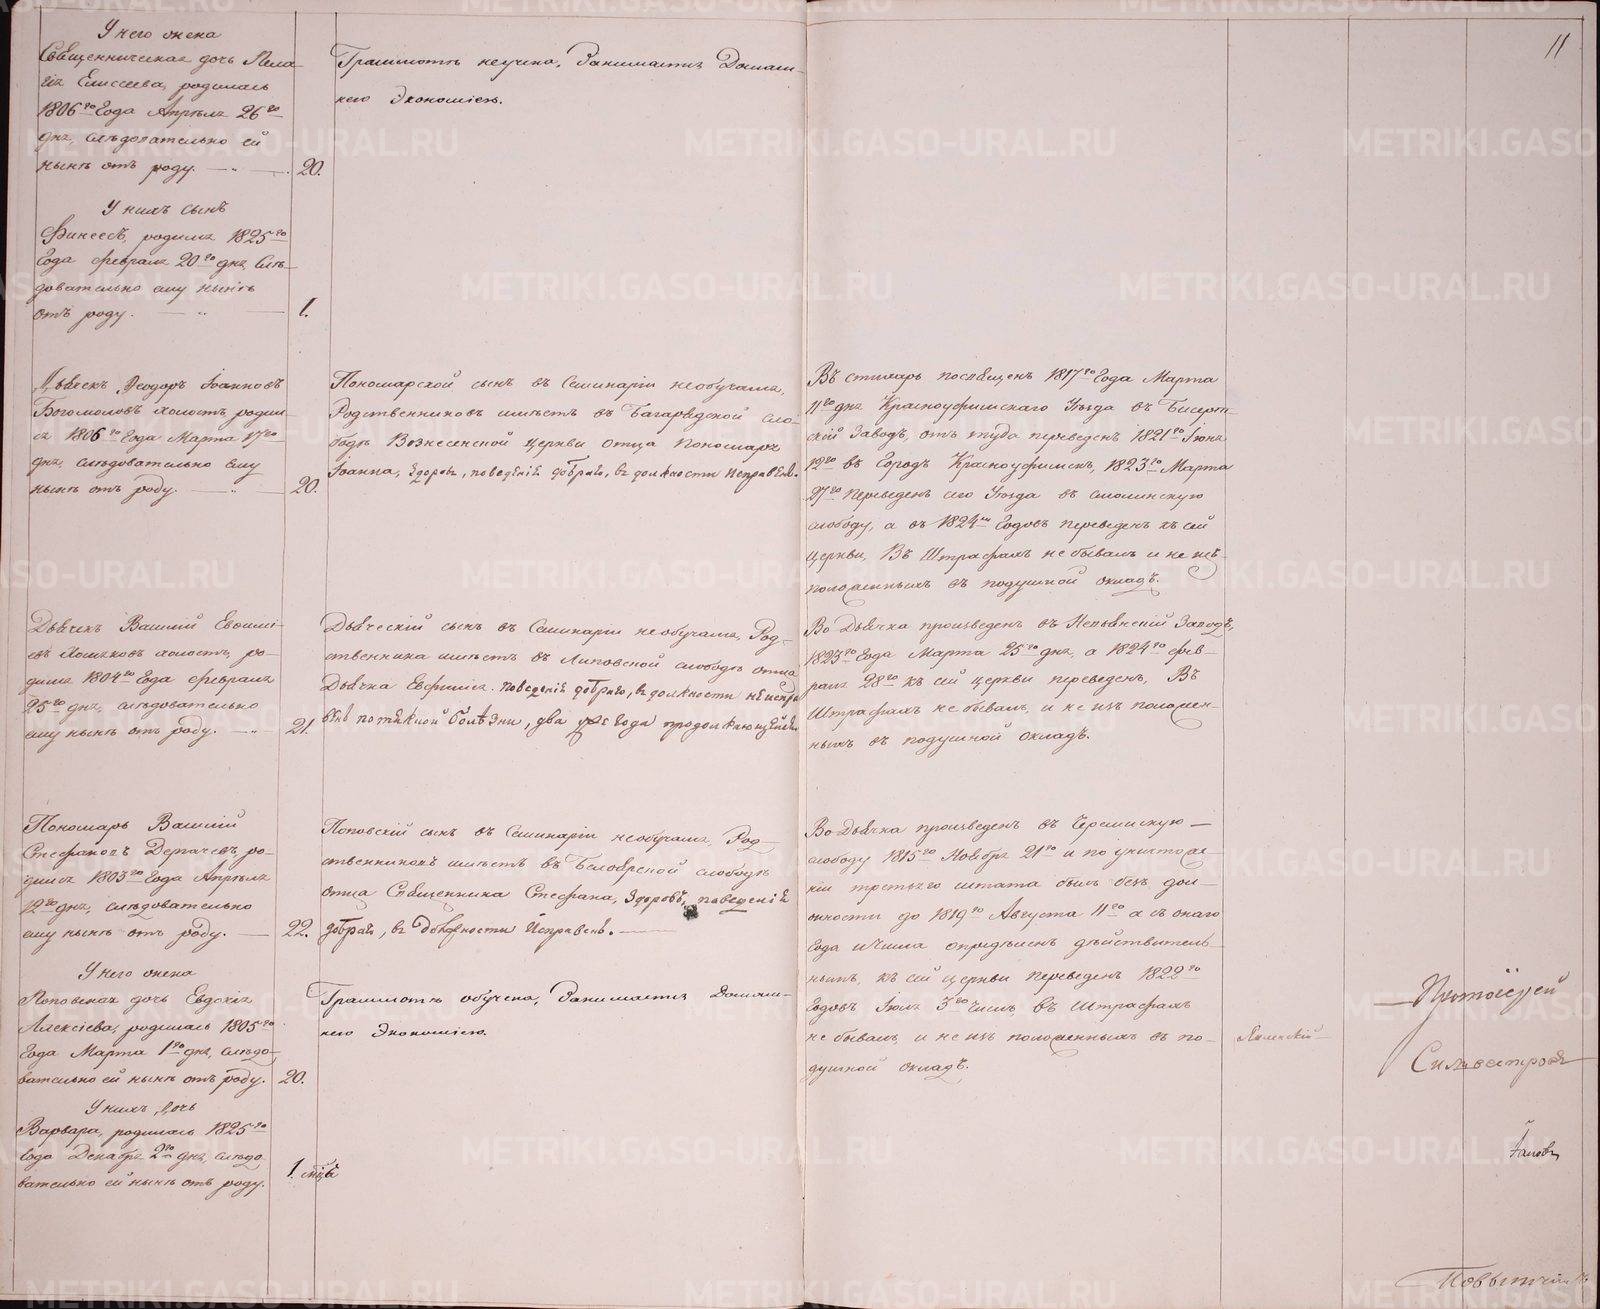 11
У него жена
Священническая дочь Пела-
гія Елисеева, родилась
1806го Года Апрѣля 26го
дня, слѣдовательно ей
нынѣ отъ роду. 20.
Грамматѣ неучена, Занимается Домаш-
нею Экономіею.
У нихъ сынъ
Финеесъ, родился 1825го
Года февраля 20го дня, Слѣ-
довательно ему нынѣ
отъ роду. 1.
Дьячекъ Ѳеодоръ Іоанновъ
Богомоловъ холостъ, родил-
ся 1806го Года Марта 17го
дня, слѣдовательно ему
нынѣ отъ роду. 20.
Пономарской сынъ въ Семинаріи необучался,
Родственниковъ имѣетъ въ Багарядской сло-
бодѣ Вознесенской церкви отца Пономаря
Іоанна, здоровъ, поведенія добраго, въ должности исправенъ.
Въ стихарь посвященъ 1817го Года Марта
11го дня Красноуфимскаго Уѣзда въ Бисерт-
скій Заводъ, отъ туда переведенъ 1821го Іюня
12го въ Городъ Красноуфимскъ, 1823го Марта
27го переведенъ сего Уѣзда въ смолинскую
слободу, а въ 1824мъ Годовъ переведенъ къ сей
церкви, Въ Штрафахъ не бывалъ и не изъ
положенныхъ въ подушной окладъ.
Дьячекъ Василій Евѳимі-
евъ Хомяковъ холостъ, ро-
дился 1804го Года февраля
25го дня, слѣдовательно
ему нынѣ отъ роду. 21.
Дьяческій сынъ въ Семинаріи необучался, Род-
ственника имѣетъ въ Липовской слободѣ отца
Дьячка Евфимія. поведенія добраго, въ должности неиспра
венъ по тяжкой болѣзни, два уже года продолжающейся
Во Дьячка произведенъ въ Невьянскій Заводъ,
1823го Года Марта 25го дня, а 1824го фев-
раля 28го къ сей церкви переведенъ, Въ
Штрафахъ не бывалъ, и не изъ положен-
ныхъ въ подушной окладъ.
Пономарь Василій
Стефановъ Дергачевъ, ро-
дился 1803го Года Апрѣля
12го дня, слѣдовательно
ему нынѣ отъ роду. 22.
Поповскій сынъ въ Семинаріи необучался, Род-
ственниковъ имѣетъ въ Белоярской слободѣ
отца Священника Стефана, здоровъ, поведенія
добраго, въ должности Исправенъ.
Во Дьячка произведенъ въ Черемискую
слободу 1815го Ноября 21го и по уничтоже-
ніи третьяго штата былъ безъ дол-
жности до 1819го Августа 11го а съ онаго
Года и Числа опредѣленъ дѣйствитель-
нымъ, къ сей церкви переведенъ 1822го
Годовъ Іюля 3го Числа, въ Штрафахъ
не бывалъ, и не изъ положенныхъ въ по-
душной окладъ.
У него жена
Поповская дочь Евдокія
Алексіева, родилась 1805го
Года Марта 1го дня, слѣдо-
вательно ей нынѣ отъ роду. 20.
Грамматѣ обучена, Занимается Домаш-
нею Экономіею.
У нихъ дочь
Варвара, родилась 1825го
Года Декабря 2го дня, слѣдо
вательно ей нынѣ отъ роду. 1. мѣсяцъ
Протоіерей
Сильвестровъ
Повытчикъ
METRIKI.GASO-URAL.RU